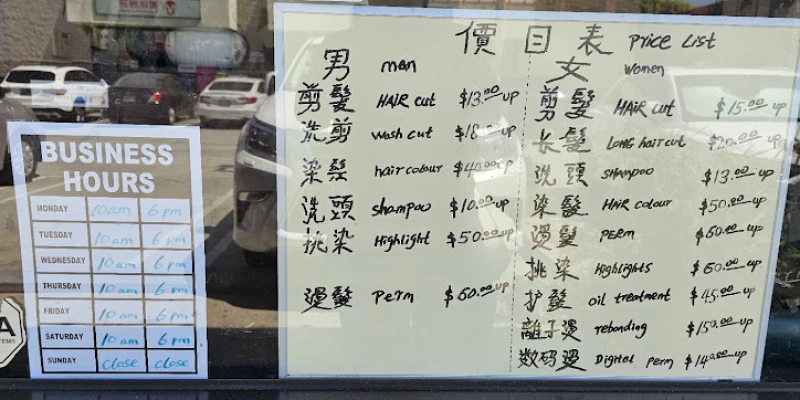 BUSINESS
HOURS
MONDAY 10am 6pm
TUESDAY 10am 6pm
WEDNESDAY 10am 6pm
THURSDAY 10am 6pm
FRIDAY 10am 6pm
SATURDAY 10am 6pm
SUNDAY close close
價目表 Price List
男 men
剪髮 HAIR cut $13.00 up
洗剪 wash cut $18.00 up
染髮 hair colour $40.00 up
洗頭 shampoo $10.00 up
挑染 Highlight $50.00 up
燙髮 Perm $60.00 up
女 Women
剪髮 HAIR cut $15.00 up
长髮 LONG hair cut $20.00 up
洗頭 SHAMPOO $13.00 up
染髮 HAIR colour $50.00 up
燙髮 PERM $60.00 up
挑染 Highlights $60.00 up
护髮 oil treatment $45.00 up
離子燙 rebonding $150.00 up
数码燙 Digital perm $140.00 up